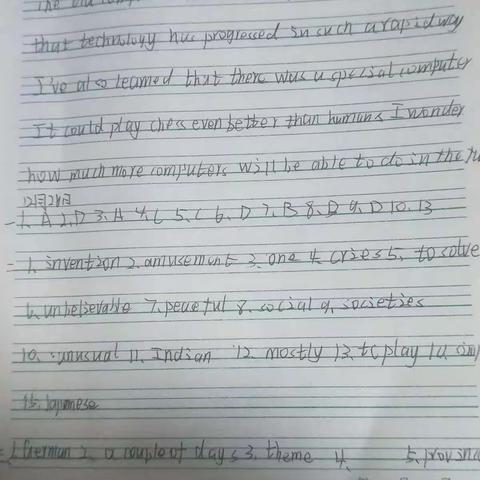 The old comp
that technology has progressed in such a rapid way
I've also learned that there was a special computer
It could play chess even better than humans I wonder
how much more computers will be able to do in the fu
12月24日
一 1. A 2. D 3. A 4. C 5. C 6. D 7. B 8. D 9. D 10. B
二 1. invention 2. amusement 3. one 4. cries 5. to solve
6. unbelievable 7. peaceful 8. social 9. societies
10. unusual 11. Indian 12. mostly 13. to play 14. sim
15. Japanese
三 1. German 2. a couple of days 3. theme 4. 5. provinc